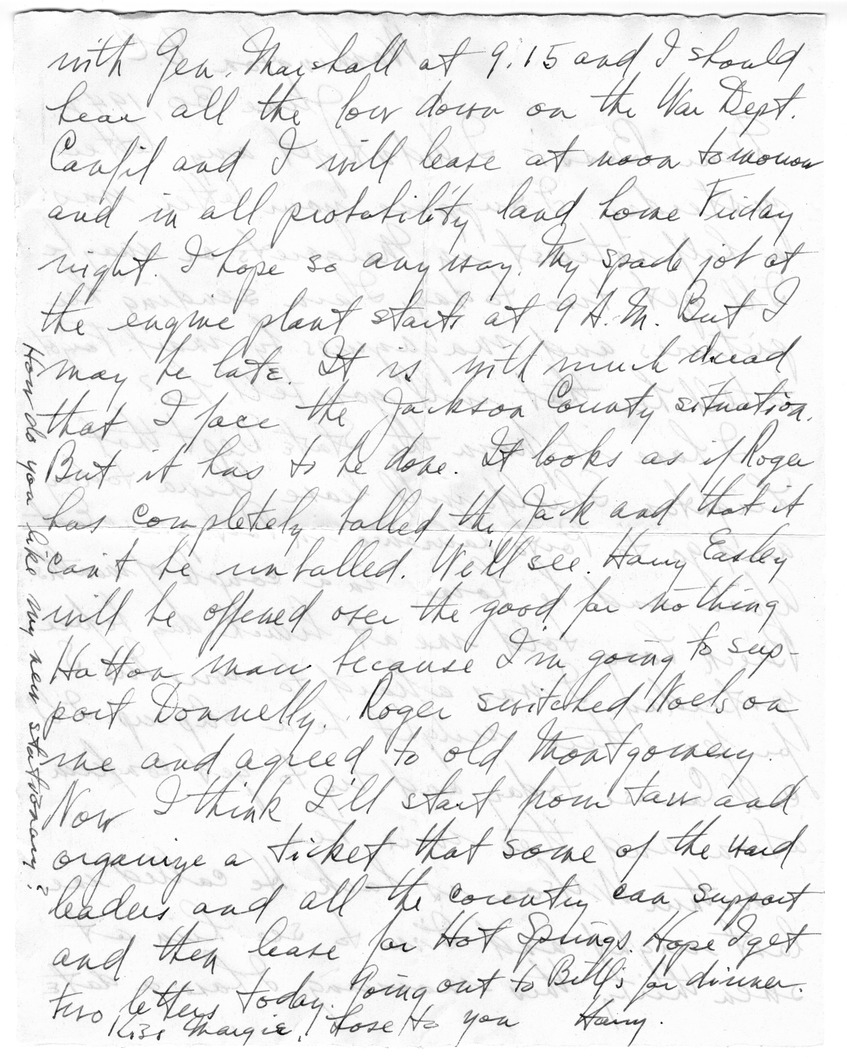 with Gen. Marshall at 9:15 and I should
hear all the low down on the War Dept.
Canfil and I will leave at noon tomorrow
and in all probability land home Friday
night. I hope so anyway. My spade job at
the engine plant starts at 9 A.M. But I
may be late. It is with much dread
that I face the Jackson County situation.
But it has to be done. It looks as if Roger
has completely balled the Jack and that it
can't be unballed. We'll see. Harry Easley
will be offened over the good for nothing
Hatton man because I'm going to sup-
port Donnelly. Roger switched Noels on
me and agreed to old Montgomery.
Now I think I'll start from taw and
organize a ticket that some of the ward
leaders and all the country can support
and then leave for Hot Springs. Hope I get
two letters today. Going out to Bill's for dinner.
Kiss Margie, Love to you Harry.
How do you like my new stationary?